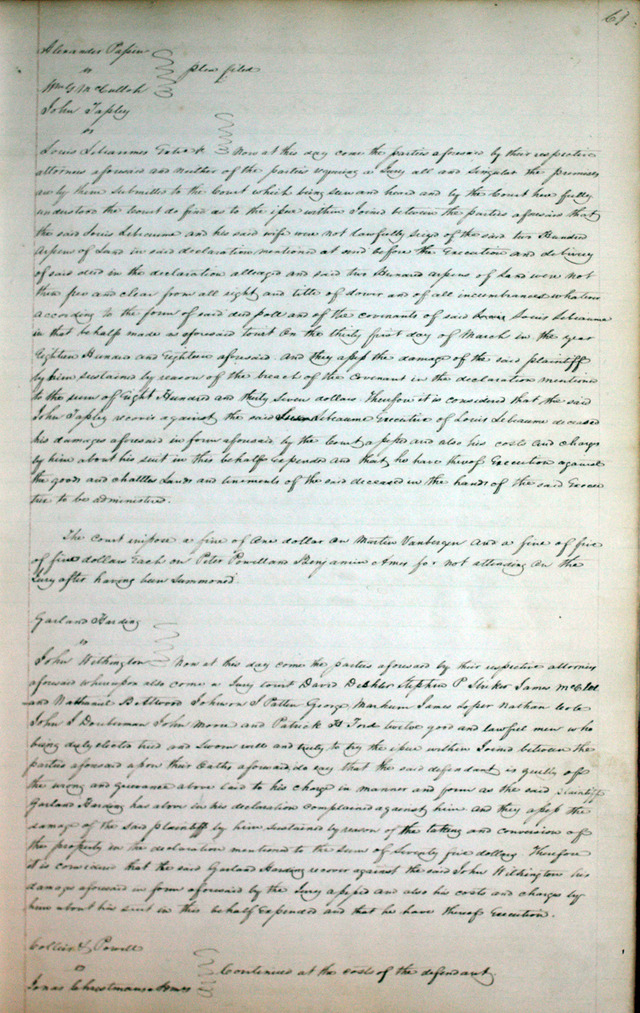 Alexander Papin
vs
plea filed
Wm G McCulloh
John Tapley
vs
Louis Lebeaumes Now at this day come the parties aforesaid by their respective
attornies aforesaid and neither of the parties requiring a Jury all and singular the premises
are by them submitted to the Court which being seen and heard and by the Court here fully
understood the Court do find as to the issue within Joined between the parties aforesaid that
the said Louis Lebeaume and his said wife were not lawfully seized of the said two Hundred
arpens of Land in said declaration mentioned at and before the Execution and delivery
of said deed in the declaration alledged and said two Hundred arpens of Land were not
then free and clear from all right and title of dower and of all incumbrances whatever
according to the form of said deed poll and of the covenants of said Louis Lebeaume
in that behalf made as aforesaid towit On the thirty first day of March in the year
Eighteen Hundred and Eighteen aforesaid. And they assess the damage of the said plaintiff
by him sustained by reason of the breach of the Covenant in the declaration mentioned
to the sum of Eight Hundred and thirty seven dollars. Therefore it is considered that the said
John Tapley recover against the said Lebeaume Executor of Louis Lebeaume deceased
his damages aforesaid in form aforesaid by the Court assessed and also his costs and charges
by him about his suit in this behalf Expended and that he have thereof Execution against
the goods and chattles Lands and tenements of the said deceased in the hands of the said Execu
tor to be administered.
The court impose a fine of One dollar on Martin Vanbergen and a fine of five
of five dollars each on Peter Powell and Benjamin Ames for not attending On the
Jury after having been Summoned.
Garland Harding
vs
John Withington Now at this day come the parties aforesaid by their respective attornies
aforesaid whereupon also come a Jury towit David Deshler Stephen P James
and Nathaniel B Atwood Johnson J Patten George Markum James Loper Nathan Cole
John J Douberman John Moore and Patrick H Ford twelve good and lawful men who
being duly elected tried and Sworn well and truly to try the issue within Joined between the
parties aforesaid upon their Oaths aforesaid, do say that the said defendant is guilty of
the wrong and grievance above laid to his charge in manner and form as the said plaintiff
Garland Harding has above in his declaration complained against him and they assess the
damage of the said plaintiff by him sustained by reason of the taking and conversion of
the property in the declaration mentioned to the Sum of Seventy five dollars Therefore
it is considered that the said Garland Harding recover against the said John Withington his
damage aforesaid in form aforesaid by the Jury assessed and also his costs and charges by
him about his suit in this behalf Expended and that he have thereof Execution.
Collier & Powell
vs
Continued at the costs of the defendant
Jonas Christman